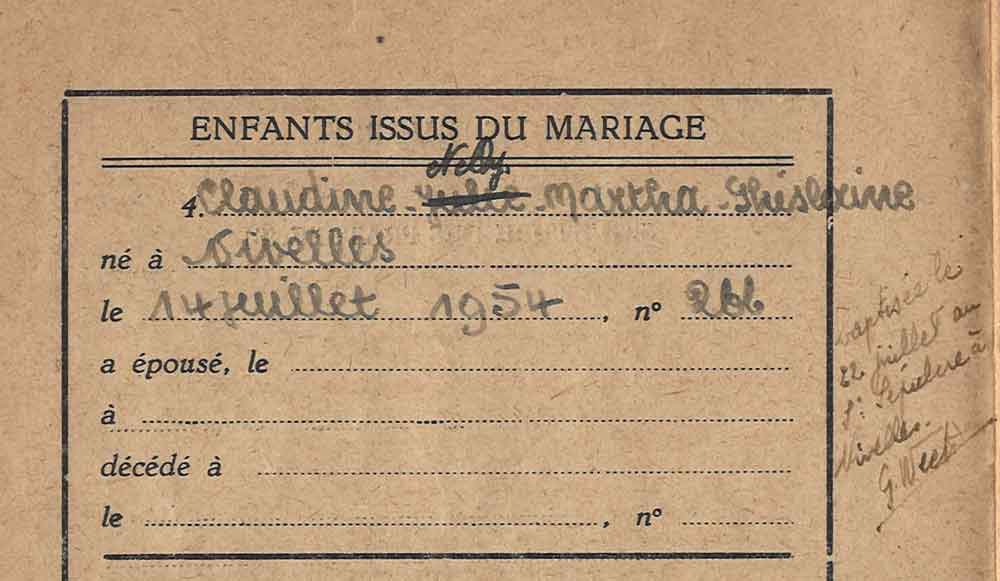 ENFANTS ISSUS DU MARIAGE
Nelly
4. Claudine - Julie - Martha - Ghislaine
né à Nivelles
le 14 juillet 1954, n° 266
a épousé, le
à
décédé à
le , n°
baptisée le
22 juillet au
St Sépulcre à
Nivelles.
G.